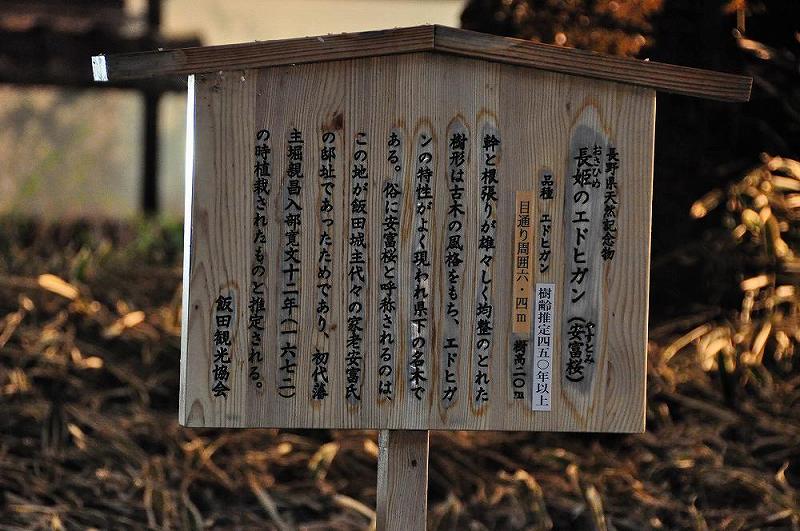 長野県天然記念物
長姫のエドヒガン(安富桜)
おさひめ
やすとみ
品種 エドヒガン 樹齢推定四五〇年以上
目通り周囲六・四m 樹高二〇m
幹と根張りが雄々しく均整のとれた
樹形は古木の風格をもち、エドヒガ
ンの特性がよく現われ県下の名木で
ある。俗に安富桜と呼称されるのは、
この地が飯田城主代々の家老安富氏
の邸址であったためであり、初代藩
主堀親昌入部寛文十二年(一六七二)
の時植裁されたものと推定される。
飯田観光協会